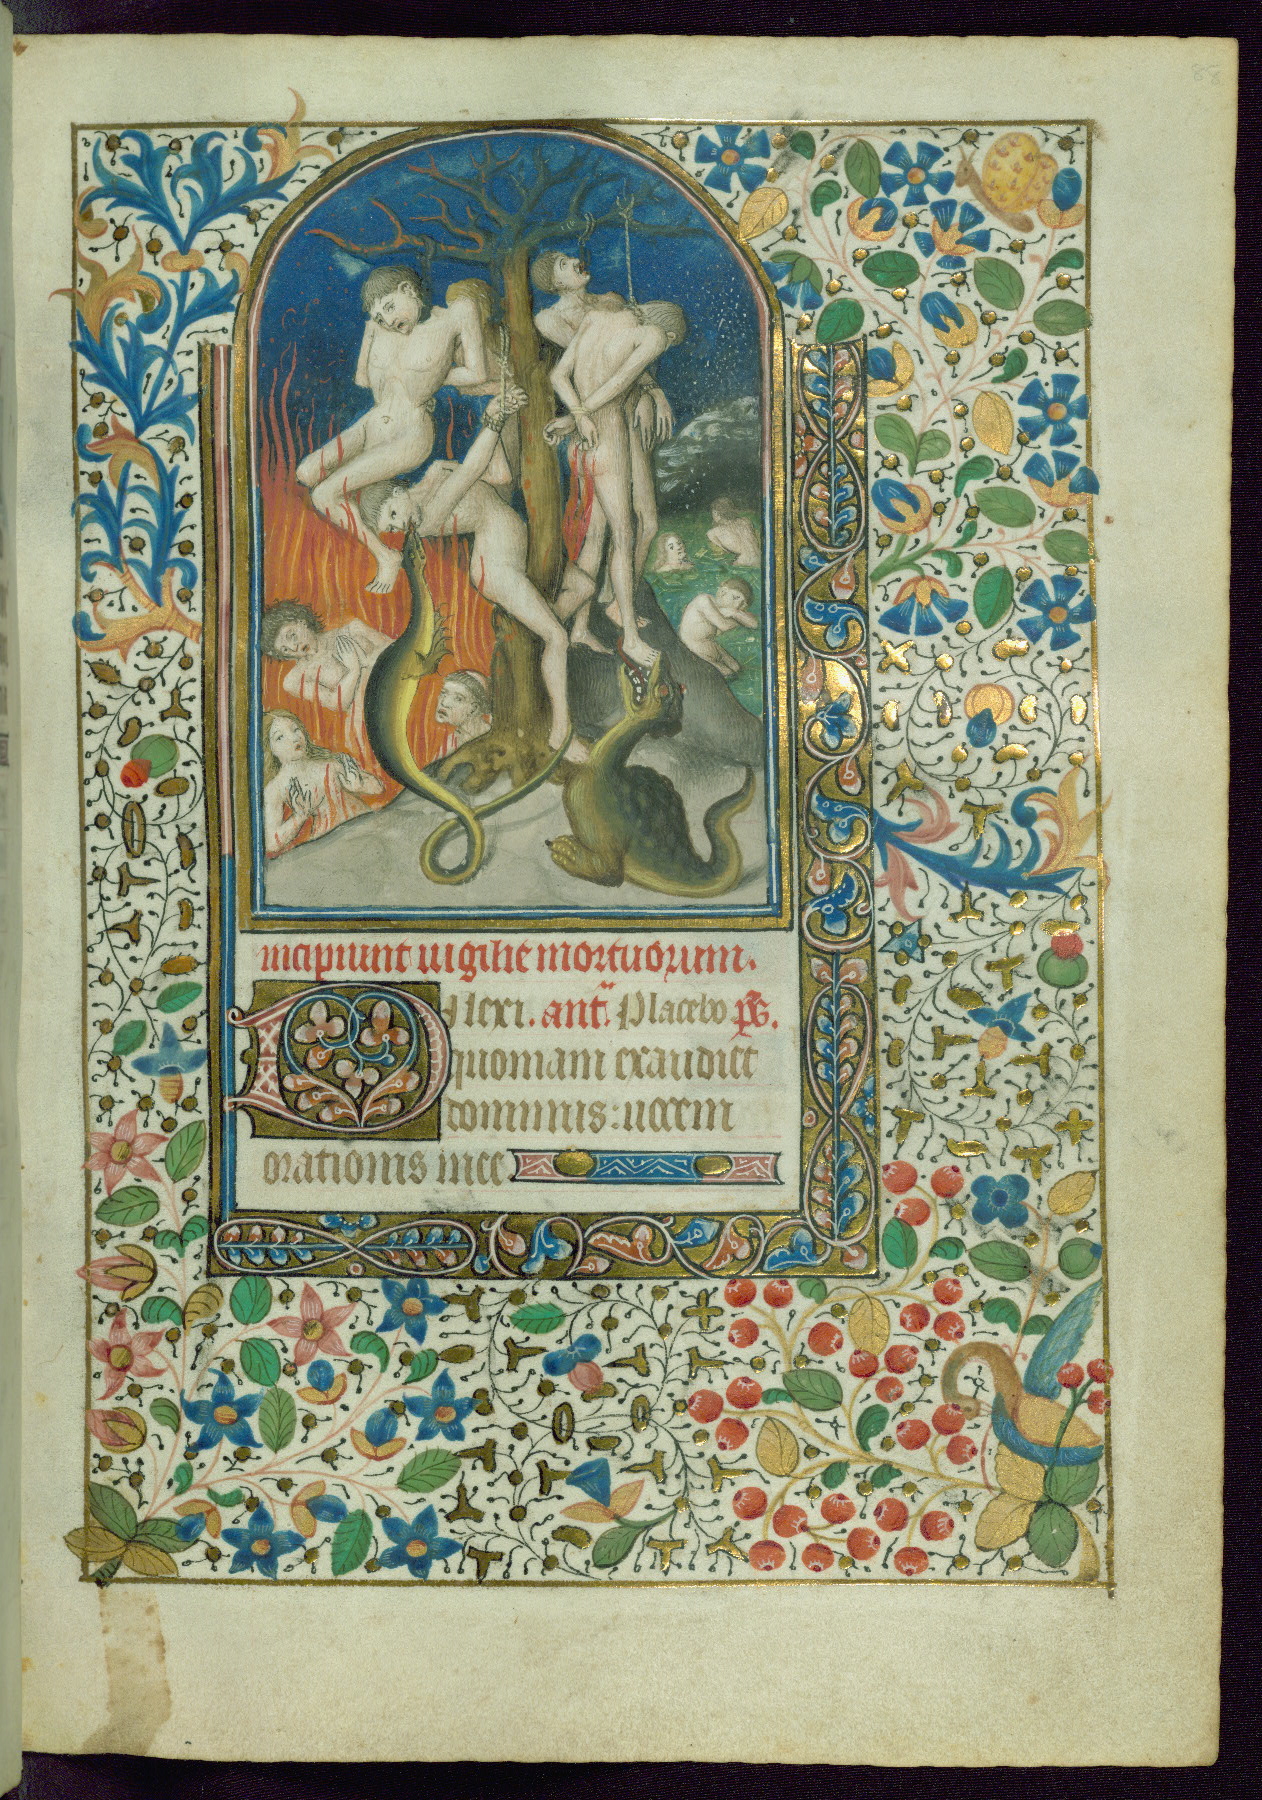 88
incipiunt uigilie mortuorum.
Dilexi. ant. Placebo ps.
quoniam exaudiet
dominus: uocem
orationis mee